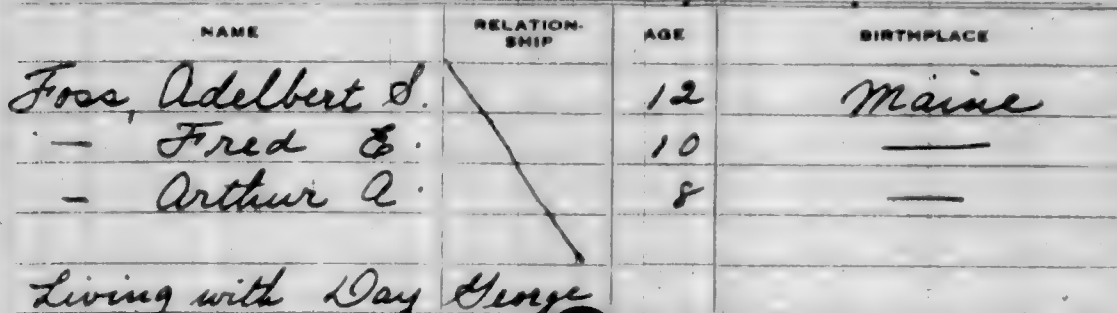 NAME RELATION-SHIP AGE BIRTHPLACE
Foss, Adelbert S. 12 Maine
— Fred E. 10 —
— Arthur A. 8 —
Living with Day George